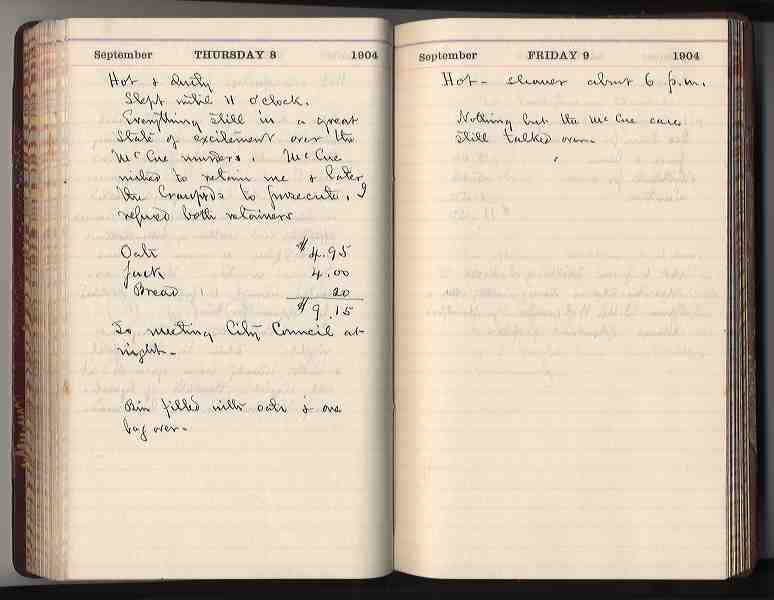 September THURSDAY 8 1904
Hot & dusty
Slept until 11 o'clock.
Everything still in a great
state of excitement over the
McCue murders. McCue
wished to retain me & later
the Crawfords to prosecute. I
refused both retainers
Oats $4.95
Jack 4.00
Bread 20
$9.15
To meeting City Council at
night.
Bin filled with oats & one
bag over.
September FRIDAY 9 1904
Hot - shower about 6 p.m.
Nothing but the McCue case
still talked over.